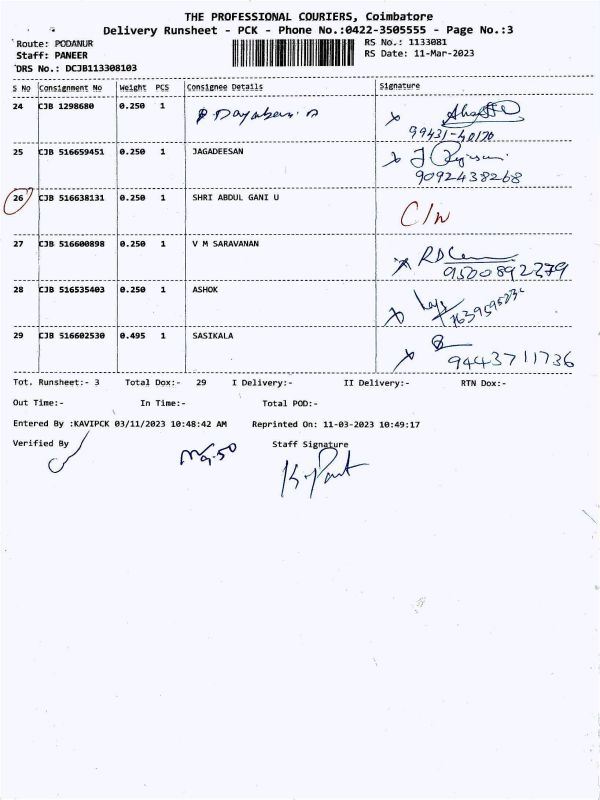 THE PROFESSIONAL COURIERS, Coimbatore
Delivery Runsheet - PCK - Phone No.:0422-3505555 - Page No.:3
Route: PODANUR
RS No.: 1133081
Staff: PANEER
RS Date: 11-Mar-2023
DRS No.: DCJB113308103
S No Consignment No Weight PCS Consignee Details Signature
24 CJB 1298680 0.250 1
99431-40170
25 CJB 516659451 0.250 1 JAGADEESAN
9092438268
26 CJB 516638131 0.250 1 SHRI ABDUL GANI U
C/N
27 CJB 516600898 0.250 1 V M SARAVANAN
9500892279
28 CJB 516535403 0.250 1 ASHOK
29 CJB 516602530 0.495 1 SASIKALA
9443711736
Tot. Runsheet:- 3 Total Dox:- 29 I Delivery:- II Delivery:- RTN Dox:-
Out Time:- In Time:- Total POD:-
Entered By :KAVIPCK 03/11/2023 10:48:42 AM Reprinted On: 11-03-2023 10:49:17
Verified By Staff Signature